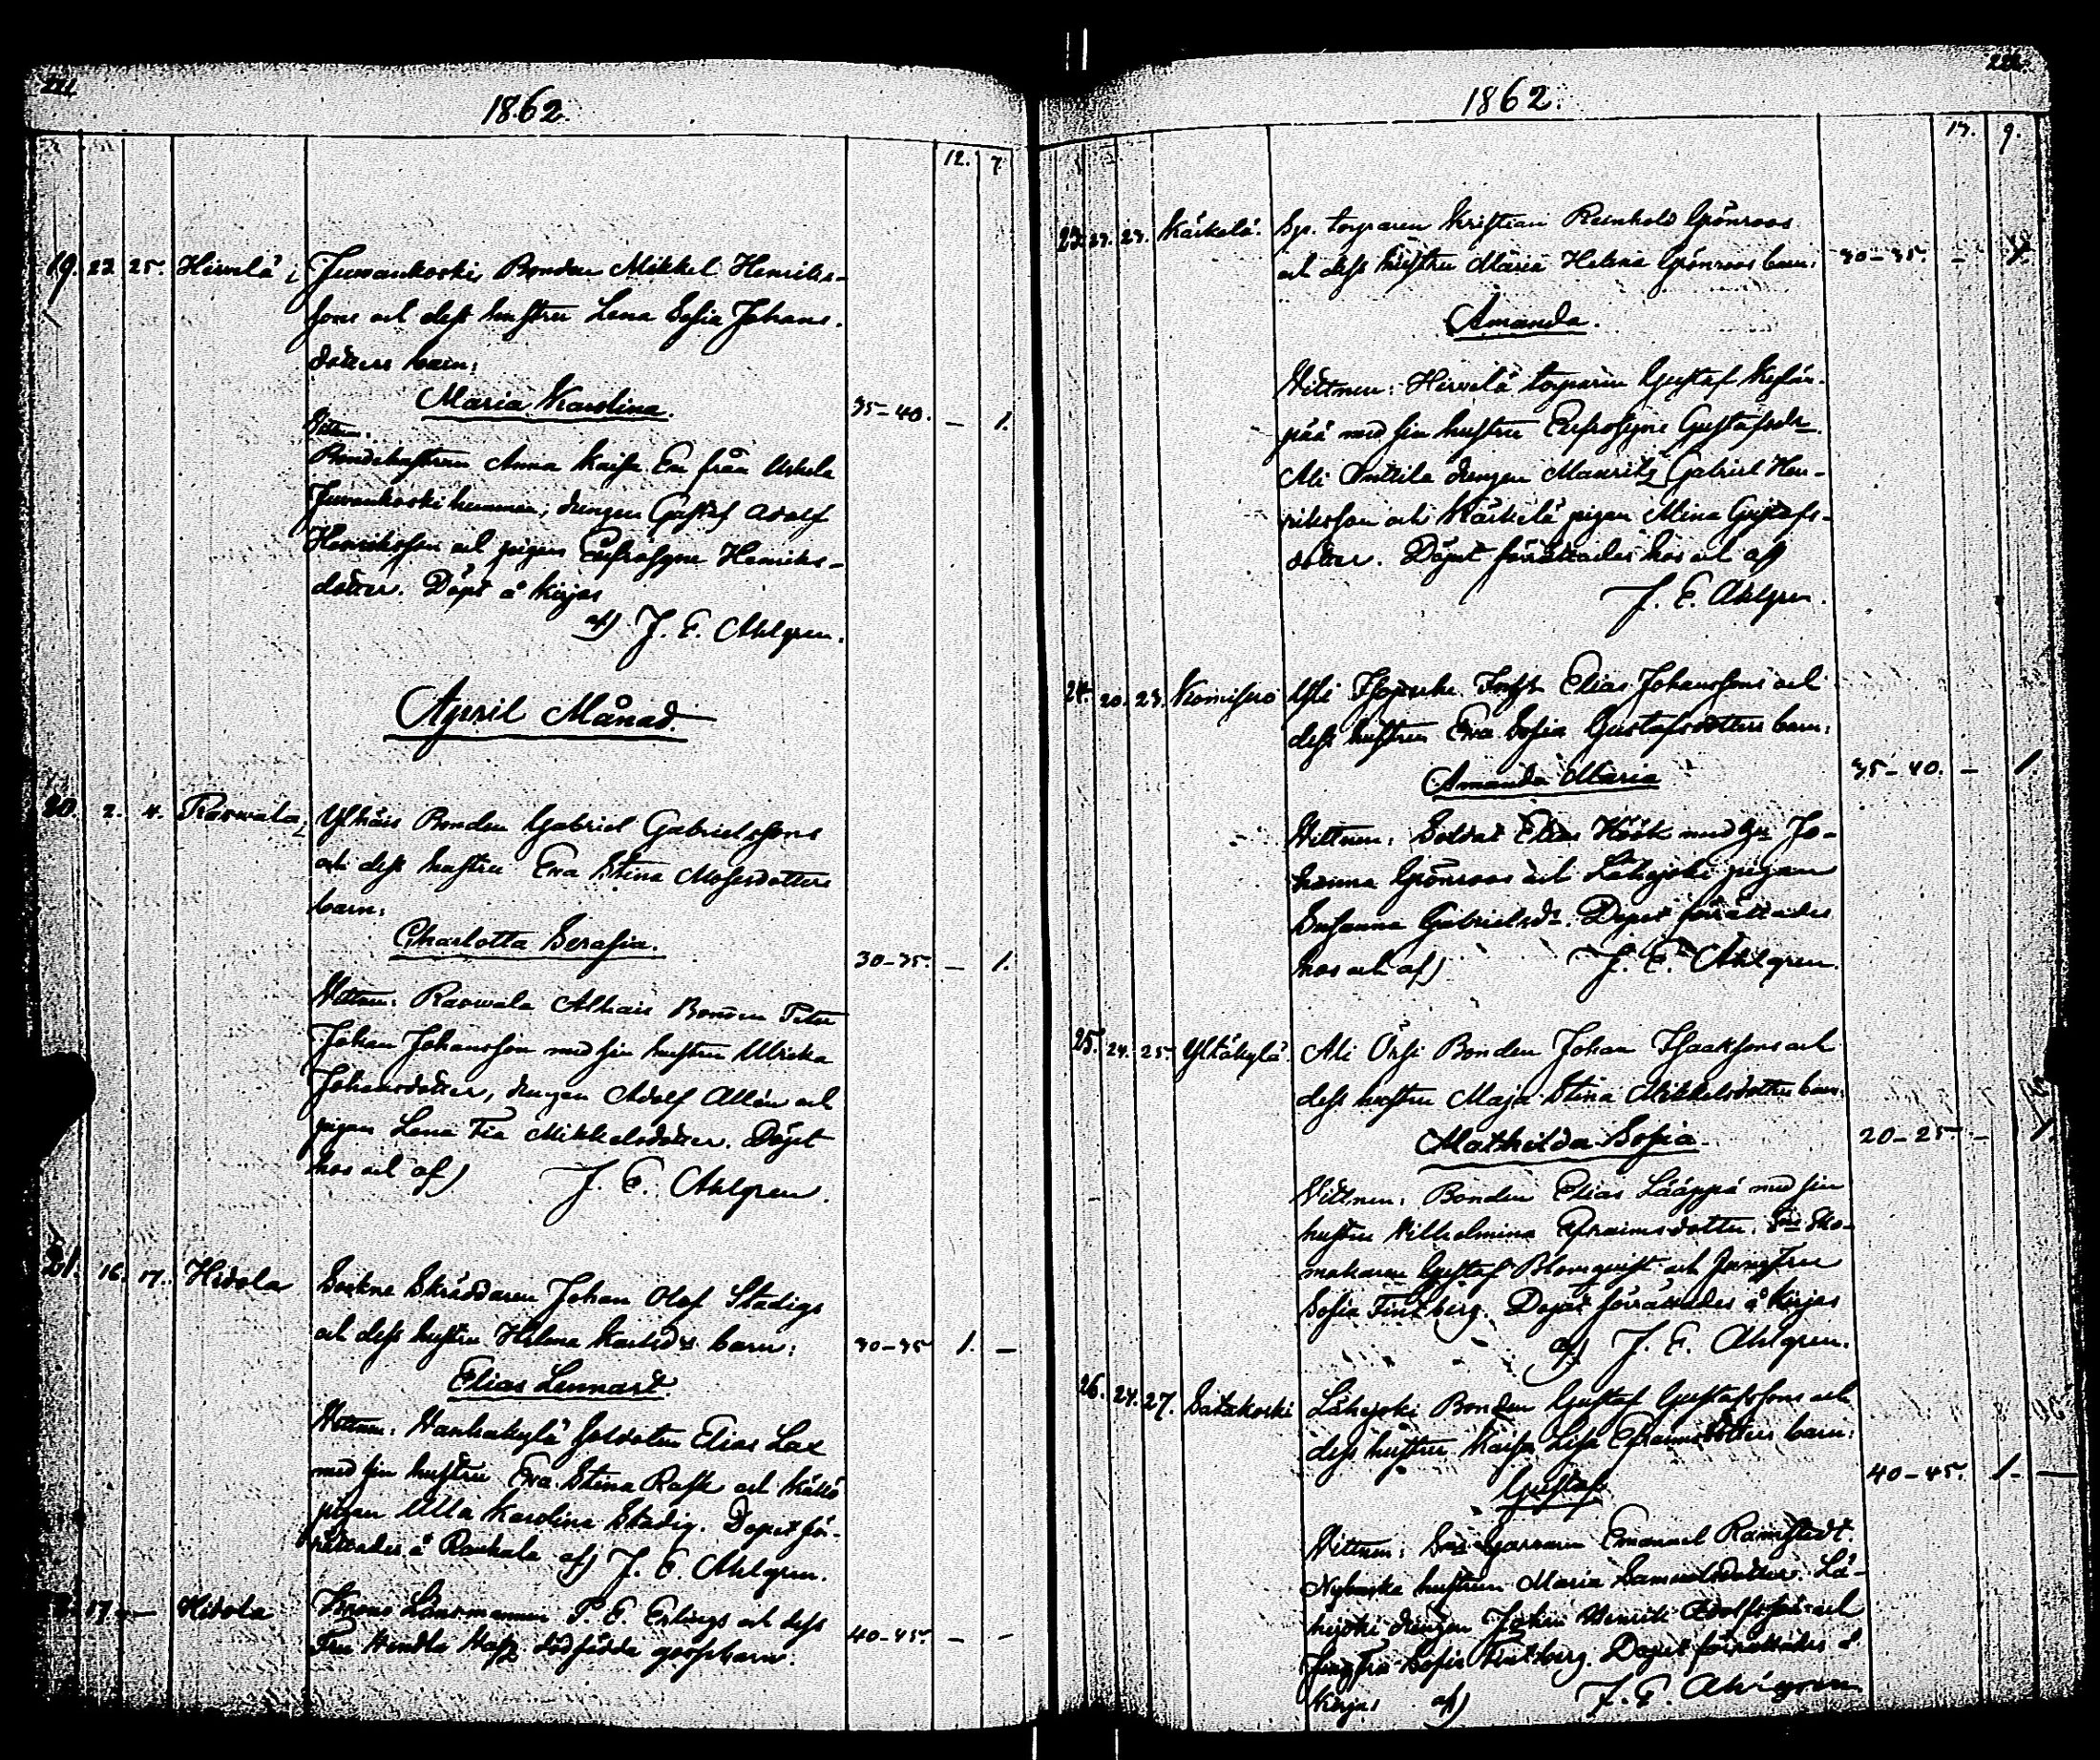 221.
1862.
12. 7.
19. 22 25. Hirvelä, Juvankoski Bonden Mikkel Henriks-
sons och dess hustru Lena Sofia Johans-
dotters barn:
Maria Karolina. 35-40. — 1.
Vittnen:
Bondehustrun Anna Kaisa En från Uskela
Juvankoski hemman, drengen Gustaf Adolf
Henriksson och pigan Eufrosyne Henriks-
dotter. Döpt å Kirjas
af) J. E. Ahlgren.
April Månad.
20. 2. 4. Raswala, Ylhäis Bonden Gabriel Gabrielssons
och dess hustru Eva Stina Mosesdotters
barn:
Charlotta Serafia. 30-35. — 1.
Vittnen: Raswala Alhais Bonden Petter
Johan Johansson med sin hustru Ulrika
Johansdotter, drengen Adolf Allén och
pigan Lena Fia Mikkelsdotter. Döpet
hos och af) J. E. Ahlgren.
21. 16. 17. Hidola Sockne Skräddaren Johan Olof Stadigs
och dess hustru Helena Karlsdrs barn: 30-35 1. —
Elias Lennart.
Vittnen: Hanhakylä Soldaten Elias Lax
med sin hustru Eva Stina Rask och
pigan Ulla Karolina Stadig. Dopet för-
rättades å Raukala af) J. E. Ahlgren.
17. — Hidola Krono Länsmannen P. E. Erlings och dess
Fru Hendla dödfödda gossebarn. 40-45. — —
222.
1862.
13. 9.
23. 23. 23. Kärkelä. Sp. torparen Kristian Reinhold Grönroos
och dess hustru Maria Helena Grönroos barn: 30-35. — 1.
Amanda.
Vittnen: Hirvelä torparen Gustaf Kylän-
pää med sin hustru Eufrosyne Gustafsdr.
Ali Anttila drengen Mauritz Gabriel Hen-
riksson och Kärkelä pigan Mina Gustafs-
dotter. Döpet förrättades hos och af
J. E. Ahlgren.
24. 20. 23. Komisuo Yli Elias Johanssons och
dess hustrus Eva Sofia Gustafsdotters barn:
Amanda Maria 35-40. — 1.
Vittnen: Soldat Elias Höök med Jo-
hanna Grönroos och Lähejoki pigan
Susanna Gabrielsdr. Dopet förrättades
hos och af) J. E. Ahlgren.
25. 24. 25. Yltäkylä. Ali Örsi Bonden Johan Isaakssons och
dess hustru Maja Stina Mikkelsdotters barn:
Mathilda Sofia. 20-25. — 1.
Vittnen: Bonden Elias Lääppä med sin
hustru Vilhelmina Efraimsdotter. Sko-
makaren Gustaf Blomquist och Jungfru
Sofia Lindberg. Dopet förrättades å Kirjas
af) J. E. Ahlgren.
26. 24. 27. Satakoski Lähejoki Bonden Gustaf Gustafssons och
dess hustru Kaisa Lisa Efraimsdotters barn:
Gustaf 40-45. 1. —
Vittnen: Garvaren Emanuel Ramstedt.
hustrun Maria Samuelsdotter. Lä-
hejoki drengen Johan Henrik Adolfsson och
Jungfru Sofia Lindberg. Dopet förrättades å
Kirjas af) J. E. Ahlgren